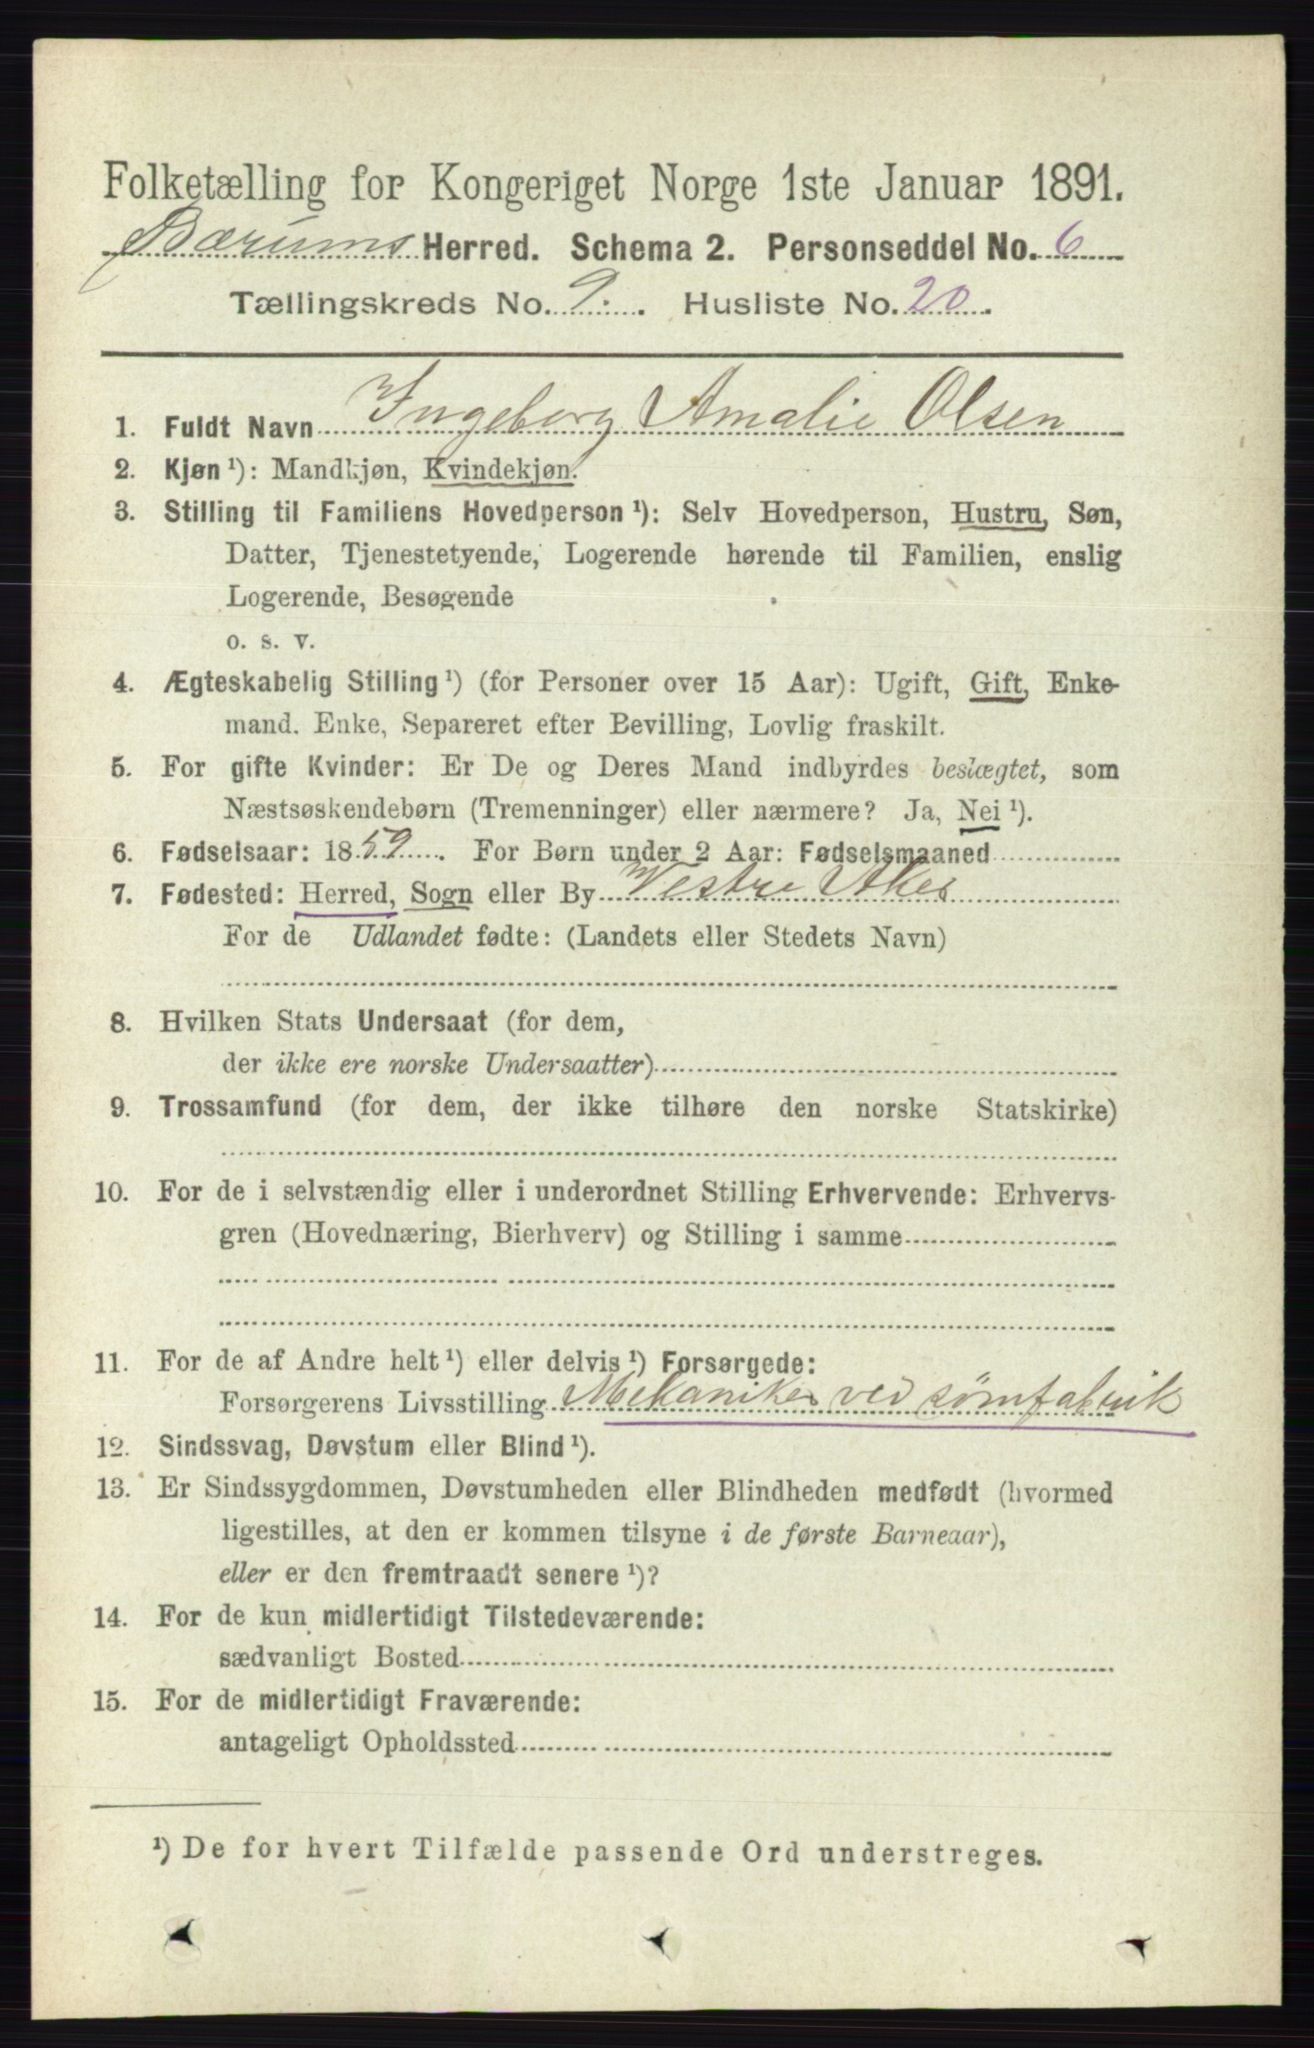 Folketælling for Kongeriget Norge 1ste Januar 1891.
Bærums Herred. Schema 2. Personseddel No. 6
Tællingskreds No. 9. Husliste No. 20.
1. Fuldt Navn Ingeborg Amalie Olsen
2. Kjøn ¹): Mandkjøn, Kvindekjøn.
3. Stilling til Familiens Hovedperson ¹): Selv Hovedperson, Hustru, Søn,
Datter, Tjenestetyende, Logerende hørende til Familien, enslig
Logerende, Besøgende
o. s. v.
4. Ægteskabelig Stilling ¹) (for Personer over 15 Aar): Ugift, Gift, Enke-
mand. Enke, Separeret efter Bevilling, Lovlig fraskilt.
5. For gifte Kvinder: Er De og Deres Mand indbyrdes beslægtet, som
Næstsøskendebørn (Tremenninger) eller nærmere? Ja, Nei ¹).
6. Fødselsaar: 1859. For Børn under 2 Aar: Fødselsmaaned
7. Fødested: Herred, Sogn eller By Vestre Aker
For de Udlandet fødte: (Landets eller Stedets Navn)
8. Hvilken Stats Undersaat (for dem,
der ikke ere norske Undersaatter)
9. Trossamfund (for dem, der ikke tilhøre den norske Statskirke)
10. For de i selvstændig eller i underordnet Stilling Erhvervende: Erhvervs-
gren (Hovednæring, Bierhverv) og Stilling i samme
11. For de af Andre helt ¹) eller delvis ¹) Forsørgede:
Forsørgerens Livsstilling Mekaniker ved sømfabrik
12. Sindssvag, Døvstum eller Blind ¹).
13. Er Sindssygdommen, Døvstumheden eller Blindheden medfødt (hvormed
ligestilles, at den er kommen tilsyne i de første Barneaar),
eller er den fremtraadt senere ¹)?
14. For de kun midlertidigt Tilstedeværende:
sædvanligt Bosted
15. For de midlertidigt Fraværende:
antageligt Opholdssted
¹) De for hvert Tilfælde passende Ord understreges.